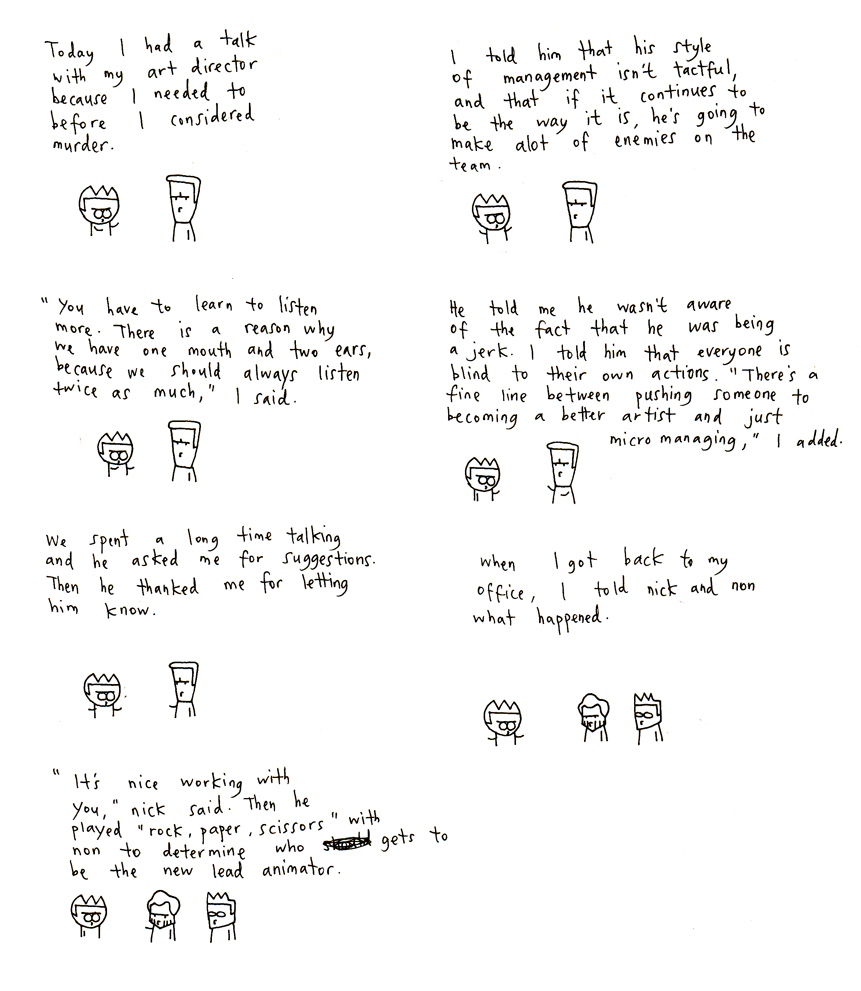 Today I had a talk
with my art director
because I needed to
before I considered
murder.
I told him that his style
of management isn't tactful,
and that if it continues to
be the way it is, he's going to
make alot of enemies on the
team.
"You have to learn to listen
more. There is a reason why
we have one mouth and two ears,
because we should always listen
twice as much," I said.
He told me he wasn't aware
of the fact that he was being
a jerk. I told him that everyone is
blind to their own actions. "There's a
fine line between pushing someone to
becoming a better artist and just
micro managing," I added.
We spent a long time talking
and he asked me for suggestions.
Then he thanked me for letting
him know.
when I got back to my
office, I told nick and non
what happened.
"It's nice working with
you," nick said. Then he
played "rock, paper, scissors" with
non to determine who gets to
be the new lead animator.